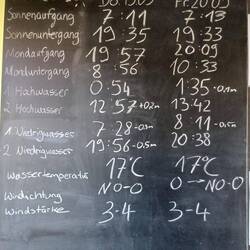 Do.19.09 Fr.20.09
Sonnenaufgang 7:11 7:13
Sonnenuntergang 19:35 19:33
Mondaufgang 19:57 20:09
Monduntergang 8:56 10:33
1. Hochwasser 0:54 1:35 -0.1m
2. Hochwasser 12:57 +0.2m 13:42
1. Niedrigwasser 7:28 -0.3m 8:11 -0.5m
2. Niedrigwasser 19:56 -0.5m 20:38
Wassertemperatur 17°C 17°C
Windrichtung NO-O O → NO-O
Windstärke 3-4 3-4